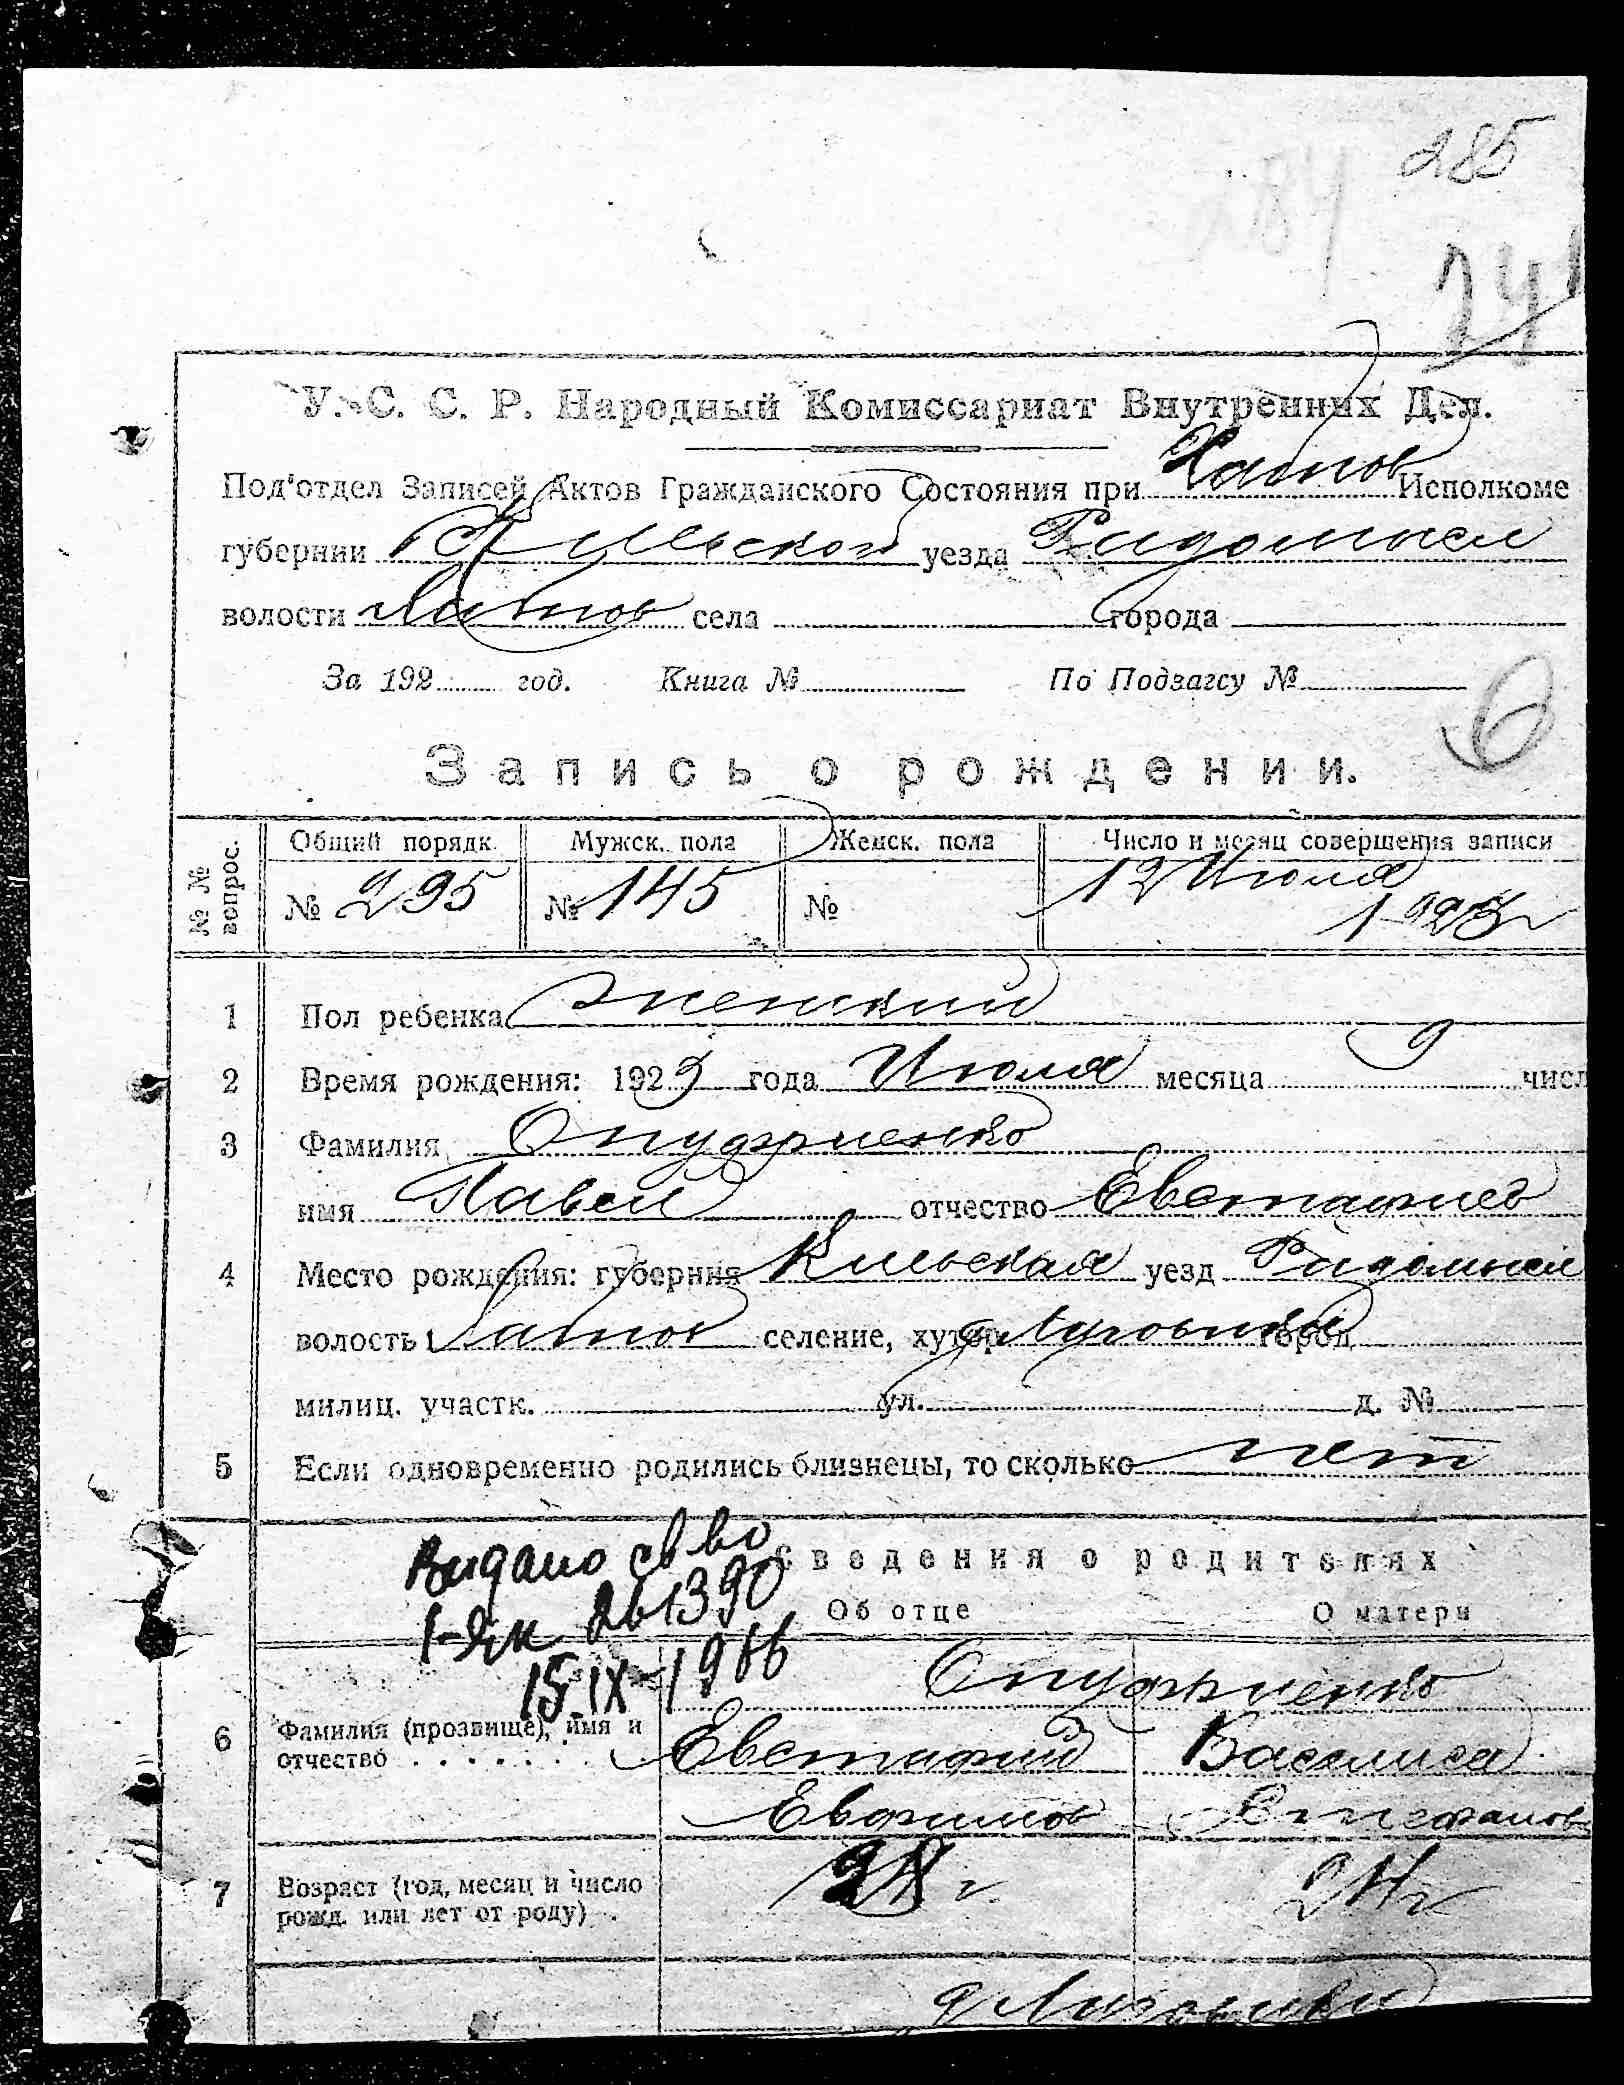 285
284
241
У. С. С. Р. Народный Комиссариат Внутренних Дел.
Под'отдел Записей Актов Гражданского Состояния при Хабнов Исполкоме
губернии Киевской уезда Радомысл
волости Хабнов села города
За 192 год. Книга № По Подзагсу №
6
Запись о рождении.
№ № вопрос. Общий порядк. Мужск. пола Женск. пола Число и месяц совершения записи
№ 295 № 145 № 12 Июля
1923
1 Пол ребенка
2 Время рождения: 1923 года Июля месяца 9 числ
3 Фамилия
имя Павел отчество Евстафиев
4 Место рождения: губерния Киевская уезд Радомысл
волость Хабнов селение, хутор город
милиц. участк. ул. д. №
5 Если одновременно родились близнецы, то сколько нет
Видано св во
Сведения о родителях
Об отце О матери
15 IX-1966
6 Фамилия (прозвище), имя и
отчество Евстафий Василиса
Евфимов Стефанов
7 Возраст (год, месяц и число 24 г
рожд. или лет от роду)